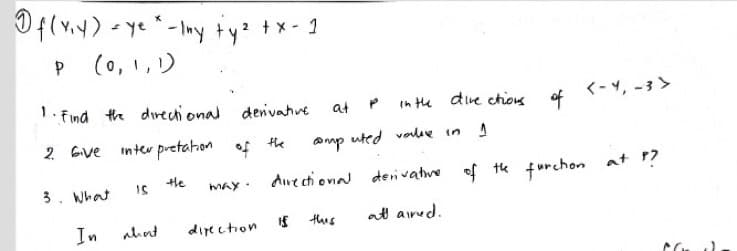 ① f(x,y) = ye^x - lny + y² + x - 1
P (0,1,1)
1. Find the directional derivative at P in the directions of <-4, -3>
2. Give interpretation of the computed value in 1
3. What is the max. directional derivative of the function at P?
In what direction is this attained.